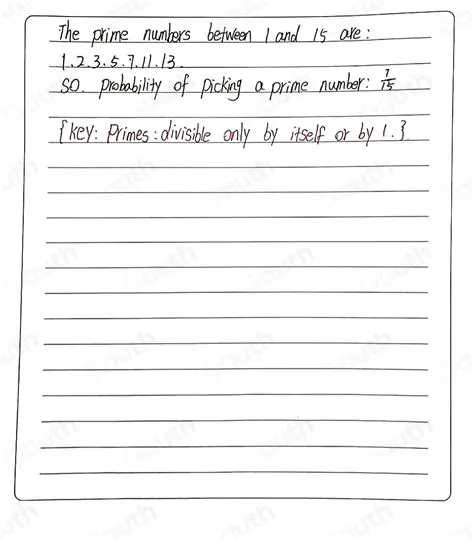 The prime numbers between 1 and 15 are:
1.2.3.5.7.11.13.
SO. probability of picking a prime number: 7/15
{key: Primes: divisible only by itself or by 1.}